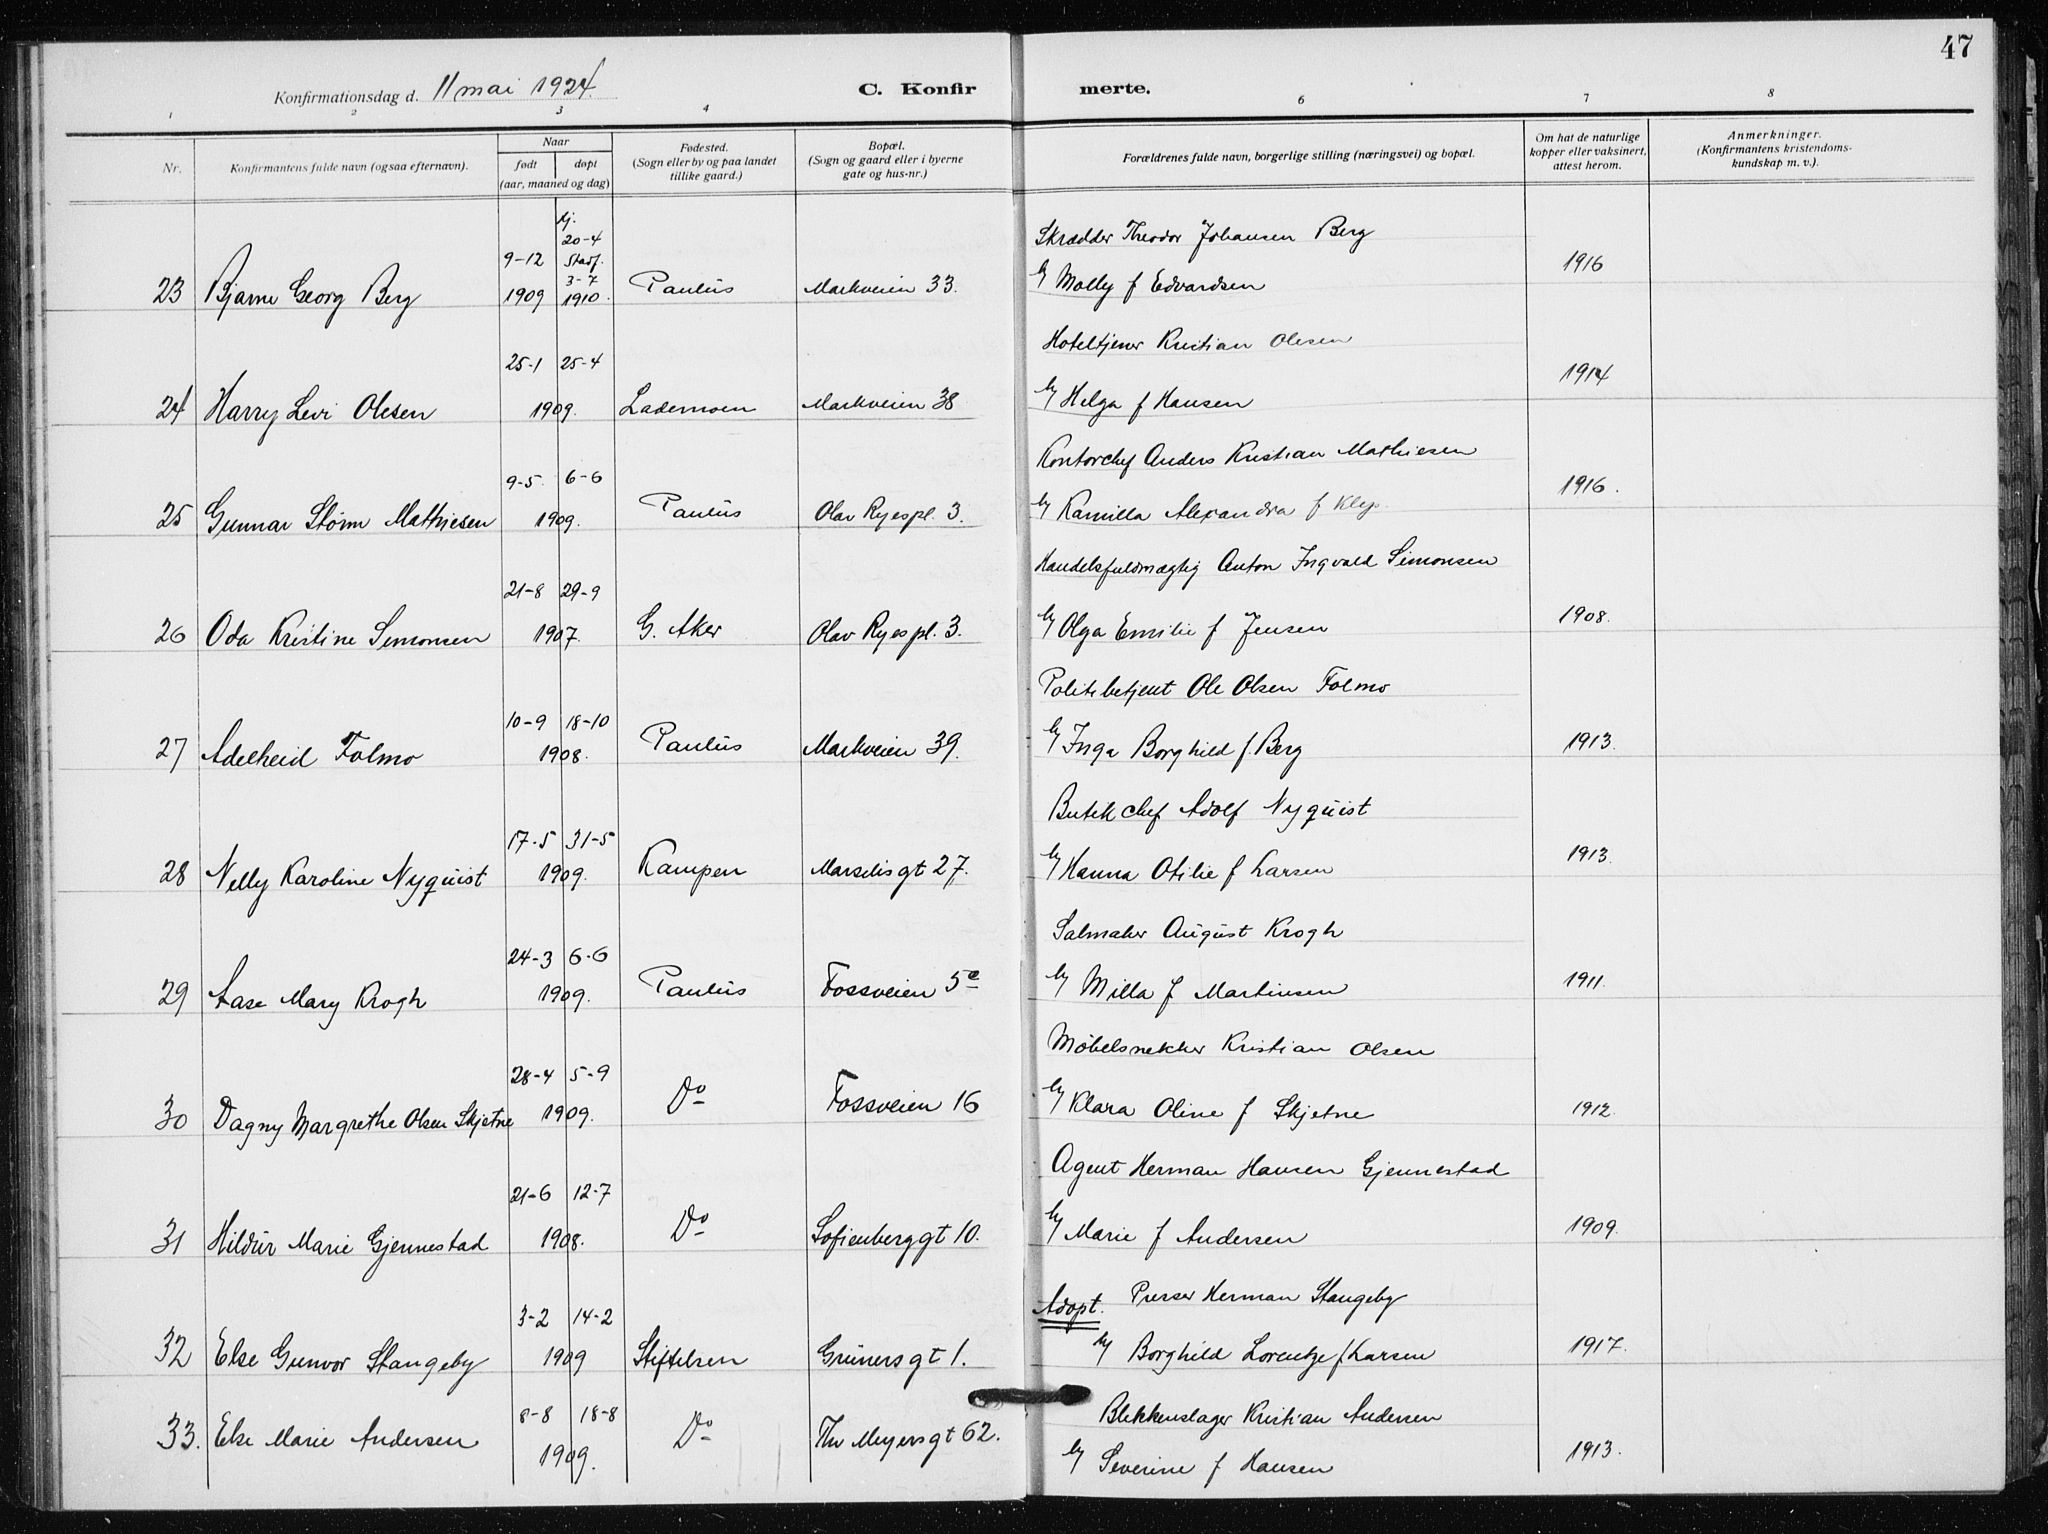 47
Konfirmationsdag d. 11 mai 1924.
C. Konfirmerte.
1 2 3 4 6 7 8
Nr. Konfirmantens fulde navn (ogsaa efternavn). Naar født døpt (aar, maaned og dag) Fødested. (Sogn eller by og paa landet tillike gaard.) Bopæl. (Sogn og gaard eller i byerne gate og hus-nr.) Forældrenes fulde navn, borgerlige stilling (næringsvei) og bopæl. Om hat de naturlige kopper eller vaksinert, attest herom. Anmerkninger. (Konfirmantens kristendomskundskap m. v.).
Hj. 20-4 Stadf. 3-7 1910. Skrædder Theodor Johansen Berg
23 Bjarne Georg Berg 9-12 1909 Paulus Markveien 33. og Molly f Edvardsen 1916
Hoteltjener Kristian Olesen
24 Harry Levi Olesen 25-1 25-4 1909. Lademoen Markveien 38 og Helga f Hansen 1914
Kontorchef Anders Kristian Mathiesen
25 Gunnar Størm Mathiesen 9-5. 6-6 1909. Paulus Olav Ryespl. 3. og Kamilla Alexandra f Klys. 1916.
Handelsfuldmægtig Anton Ingvald Simonsen
26 Oda Kristine Simonsen 21-8 29-9 1907. G. Aker Olav Ryespl. 3. og Olga Emilie f Jensen 1908.
Politibetjent Ole Olsen Folmo
27 Adelheid Folmo 10-9 18-10 1908. Paulus Markveien 39. og Inga Borghild f. Berg 1913.
Butikchef Adolf Nyquist
28 Nelly Karoline Nyquist 17-5 31-5 1909. Kampen Marselisgt 27. og Hanna Otilie f Larsen 1913.
Salmaker August Krogh
29 Aase Mary Krogh 24-3 6-6 1909. Paulus Fossveien 5c og Milla f Martinsen 1911.
Møbelsnekker Kristian Olsen
30 Dagny Margrethe Olsen Skjetne 28-4 5-9 1909. Do Fossveien 16 og Klara Oline f Skjetne 1912.
Agent Herman Hansen Gjennestad
31 Hildur Marie Gjennestad 21-6 12-7 1908. Do Sofienberggt 10. og Marie f Andersen 1909.
Adopt. Presser Herman Stangeby
32 Else Gunvor Stangeby 3-2 14-2 1909 Stiftelsen Grünersgt 1. og Borghild Lorentze f Larsen 1917.
Blikkenslager Kristian Andersen
33. Else Marie Andersen 8-8 18-8 1909. Do Thv Meyersgt 62. og Severine f Hansen 1913.